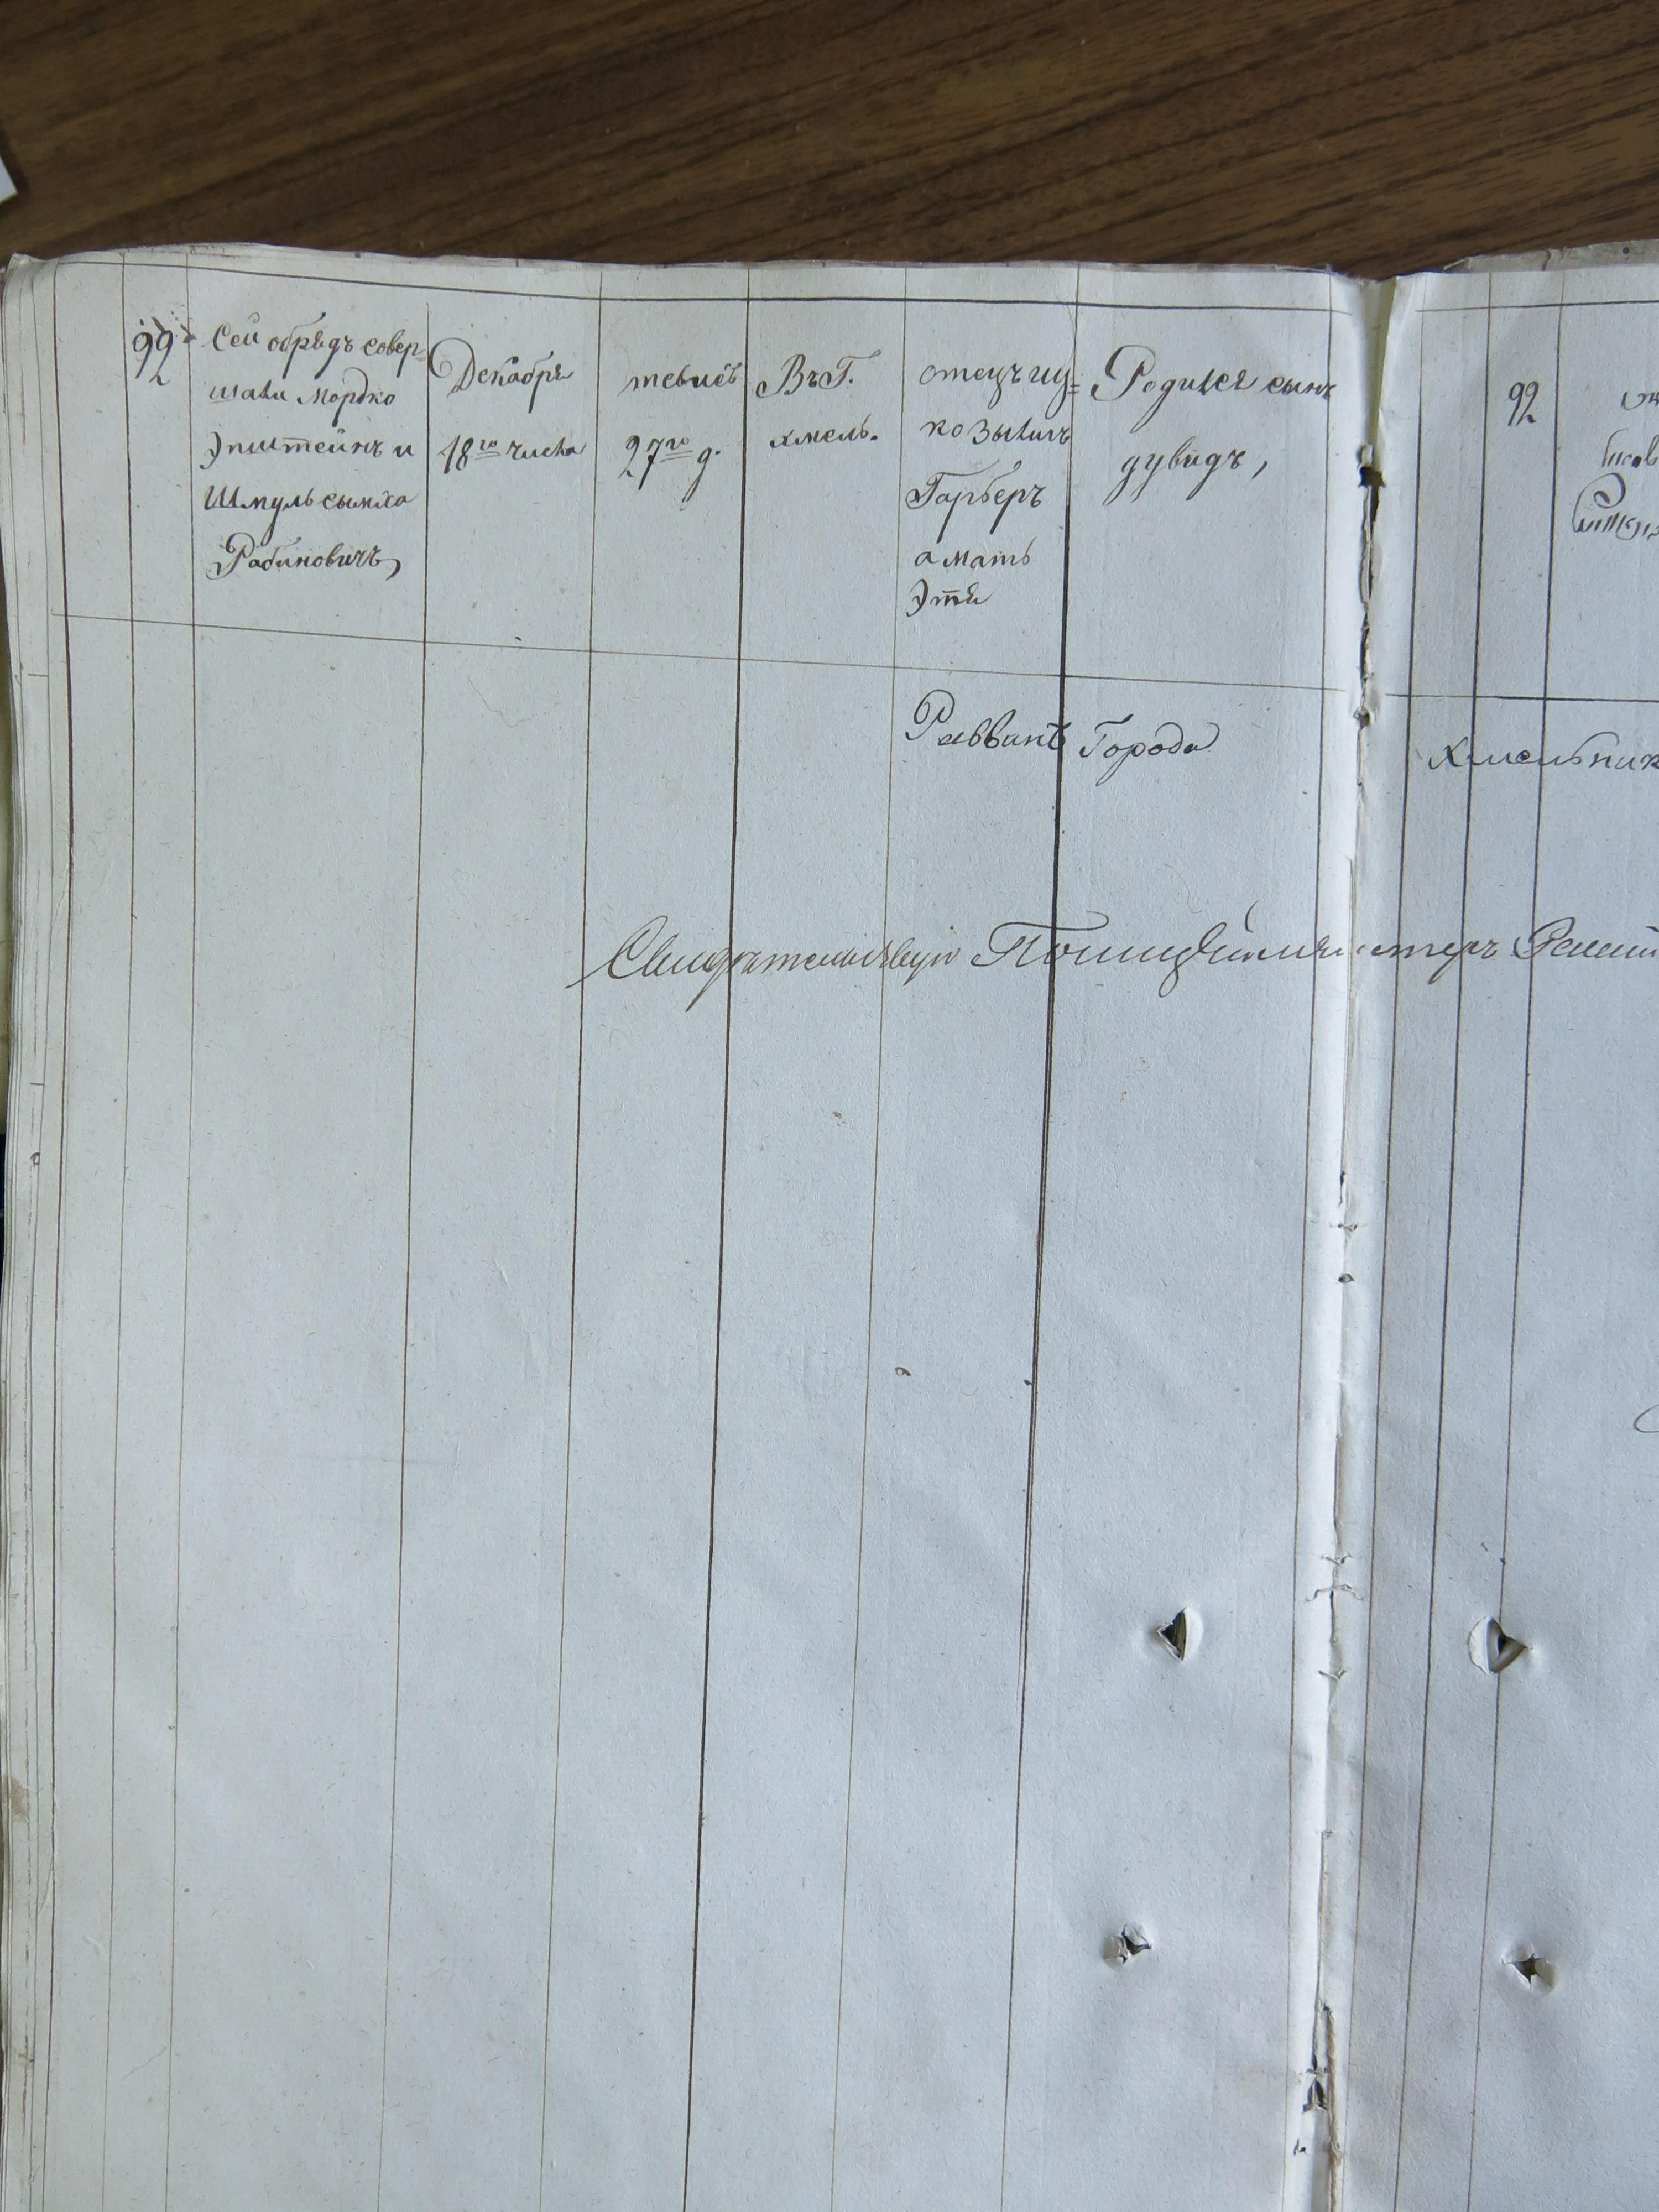 92
Сей обрядъ совер=
шали Мордко
Эпштейнъ и
Шмуль сымха
Рабиновичъ,
Декабря
18го числа
тевисъ
27го д.
ВъГ.
хмель.
отецъ иц=
ко Зылиъ
Гарберъ
а мать
Этя
Родился сынъ
дувидъ,
92
Раввинъ Города
Хмельник
Свидетельствую Полицейместеръ